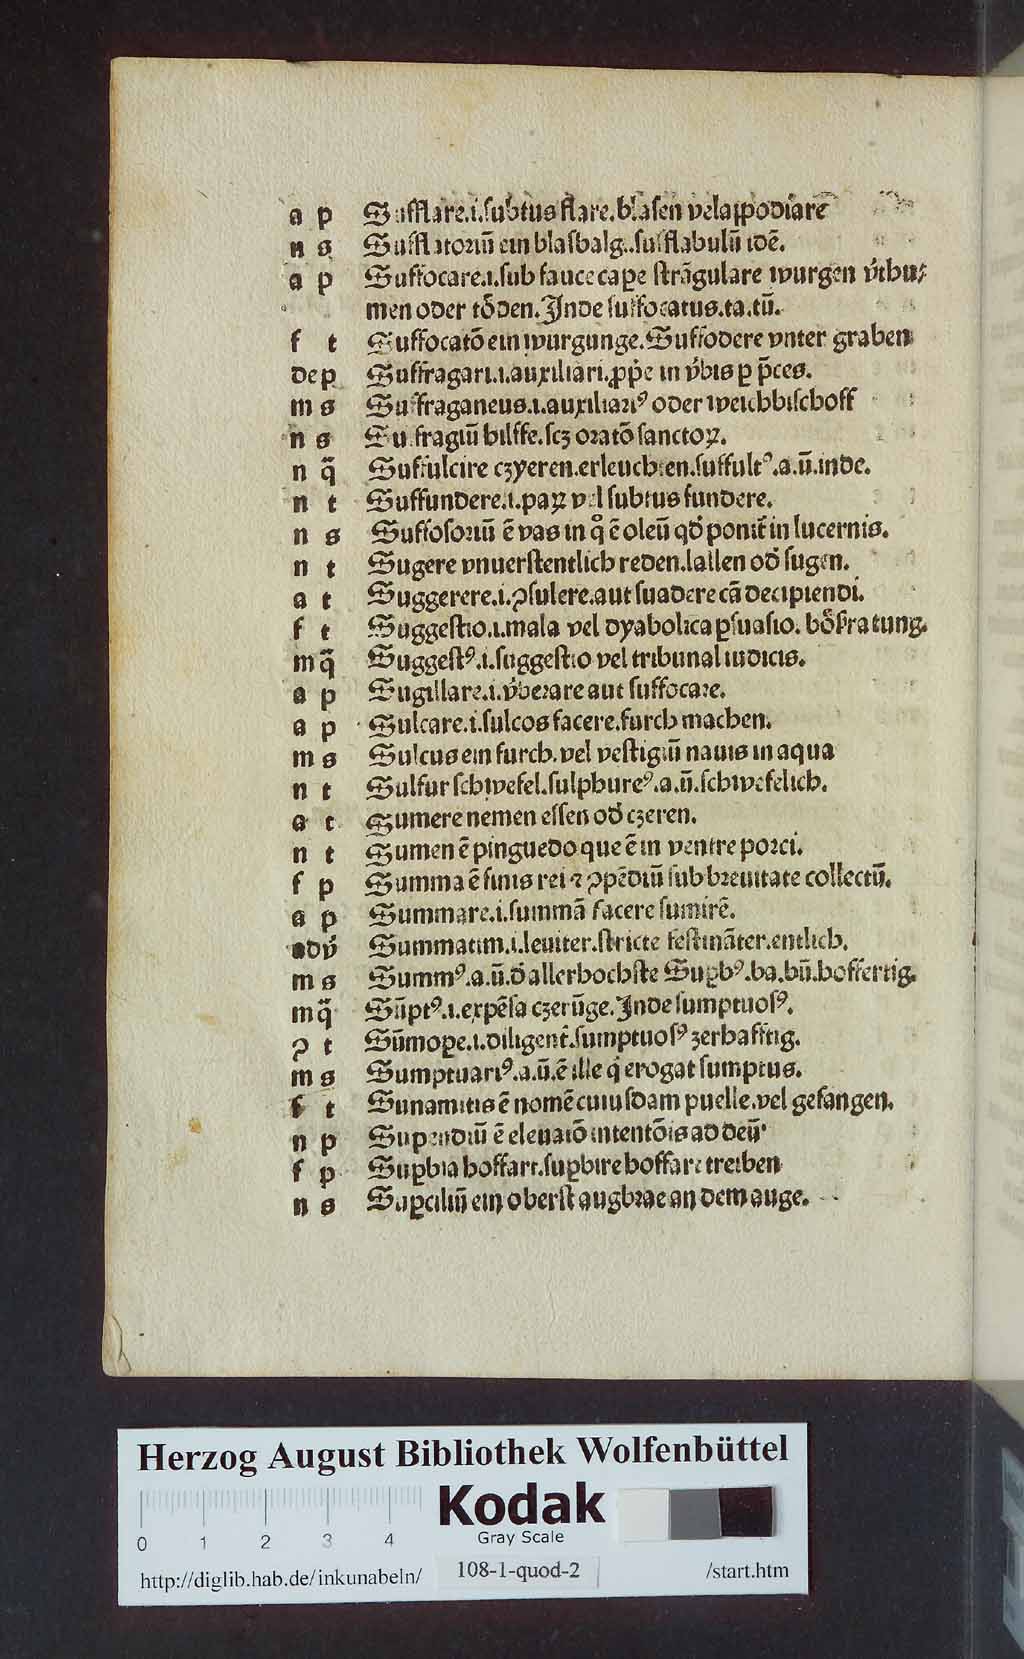 a p Sufflare.i.subtus flare.blasen
n s Sufflatoriū ein blasbalg..sufflabulū idē.
a p Suffocare.i.sub fauce cape strāgulare wurgen
men oder tōden.Inde suffocatus.ta.tū.
f t Suffocatō ein wurgunge.Suffodere vnter graben
dep Suffragari.i.auxiliari.ꝓp̄e in v̓bis ꝑ p̄ces.
m s Suffraganeus.i.auxiliariꝰ oder weichbischoff
n s Suffragiū hilffe.scꝫ oratō sanctoꝝ.
n q̄ Suffulcire czyeren.erleuchten.suffultꝰ.a.ū.inde.
n t Suffundere.i.paꝝ vel subtus fundere.
n s Suffosoriū ē vas in qͦ ē oleū qd̓ ponit̄ in lucernis.
n t Sugere vnuerstentlich reden.lallen od̓ sugen.
a t Suggerere.i.ꝯsulere.aut suadere cā decipiendi.
f t Suggestio.i.mala vel dyabolica ꝑsuasio.
mq̄ Suggestꝰ.i.suggestio vel tribunal iudicis.
a p Sugillare.i.v̓berare aut suffocare.
a p Sulcare.i.sulcos facere.furch machen.
m s Sulcus ein furch.vel vestigiū nauis in aqua
n t Sulfur schwefel.sulphureꝰ.a.ū.schwefelich.
a t Sumere nemen essen od̓ czeren.
n t Sumen ē pinguedo que ē in ventre porci.
f p Summa ē finis rei ⁊ ꝯpēdiū sub breuitate collectū.
a p Summare.i.summā facere sumirē.
adv̓ Summatim.i.leuiter.stricte festināter.entlich.
m s Summꝰ.a.ū.d̓ allerhochste Suꝑbꝰ.ba.bū.hoffertig.
mq̄ Sūptꝰ.i.expēsa czerūge.Inde sumptuosꝰ.
ꝯ t Sūmoꝑe.i.diligent̓.sumptuosꝰ zerhafftig.
m s Sumptuariꝰ.a.ū.ē ille q̓ erogat sumptus.
f t Sunamitis ē nomē cuiusdam puelle.vel gefangen.
n p ē eleuatō intentōis ad deū
f p Suꝑbia hoffart.suꝑbire hoffart treiben
n s Suꝑciliū ein oberst augbrae an dem auge.
Herzog August Bibliothek Wolfenbüttel
Kodak
Gray Scale
0 1 2 3 4
http://diglib.hab.de/inkunabeln/ 108-1-quod-2 /start.htm